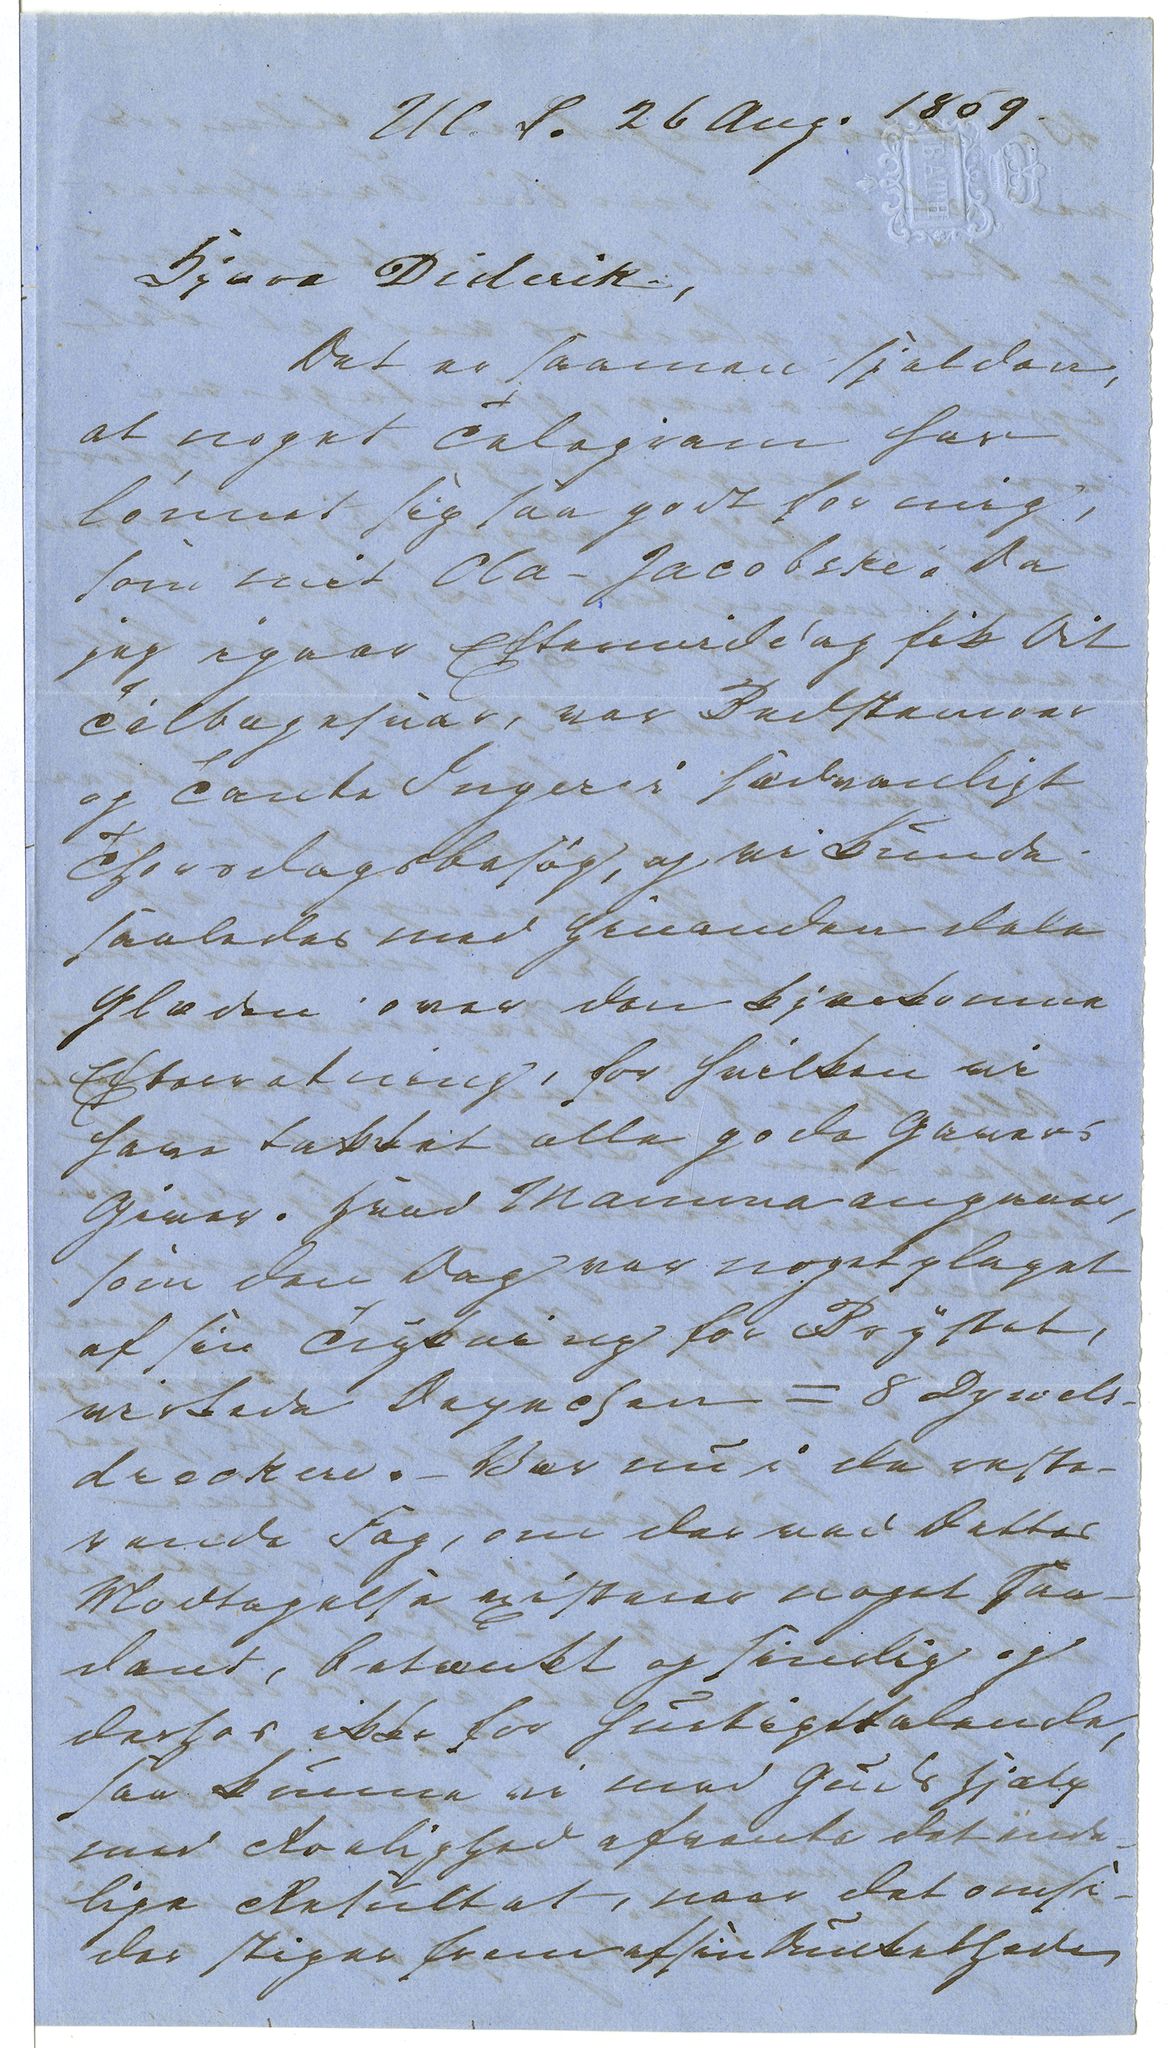 Ul. S. 26 Aug. 1859.
BATH
Kjære Diderik,
Det er saamen sjelden,
at noget Telegram har
lønnet sig saa godt for mig,
som mit Ola-Jacobske. Da
jeg igaar Eftermiddag fik Dit
Tilbagesvar, var Bedstemoer
og Tante Inger i sædvanligt
Thorsdagsbesøg, og vi kunde
saaledes med hinanden dele
Glæden over den kjærkomne
Efterretning, for hvilken vi
have takket alle gode Gavers
Giver. Hvad Mamma angaaer,
som den Dag var noget plaget
af sin Trykning for Brystet,
virkede Depechen = 8 Dywels-
drecker. – Vær nu i de reste-
rende Dage, om der ved Dettes
Modtagelse existerer noget Saa-
dant, betænkt og sindig og
derhos ikke for hurtigttalende,
saa kunne vi med Guds Hjælp
med Roelighed afvente det ende-
lige Resultat, naar det omsi-
der stiger frem af sin Dunkelhed